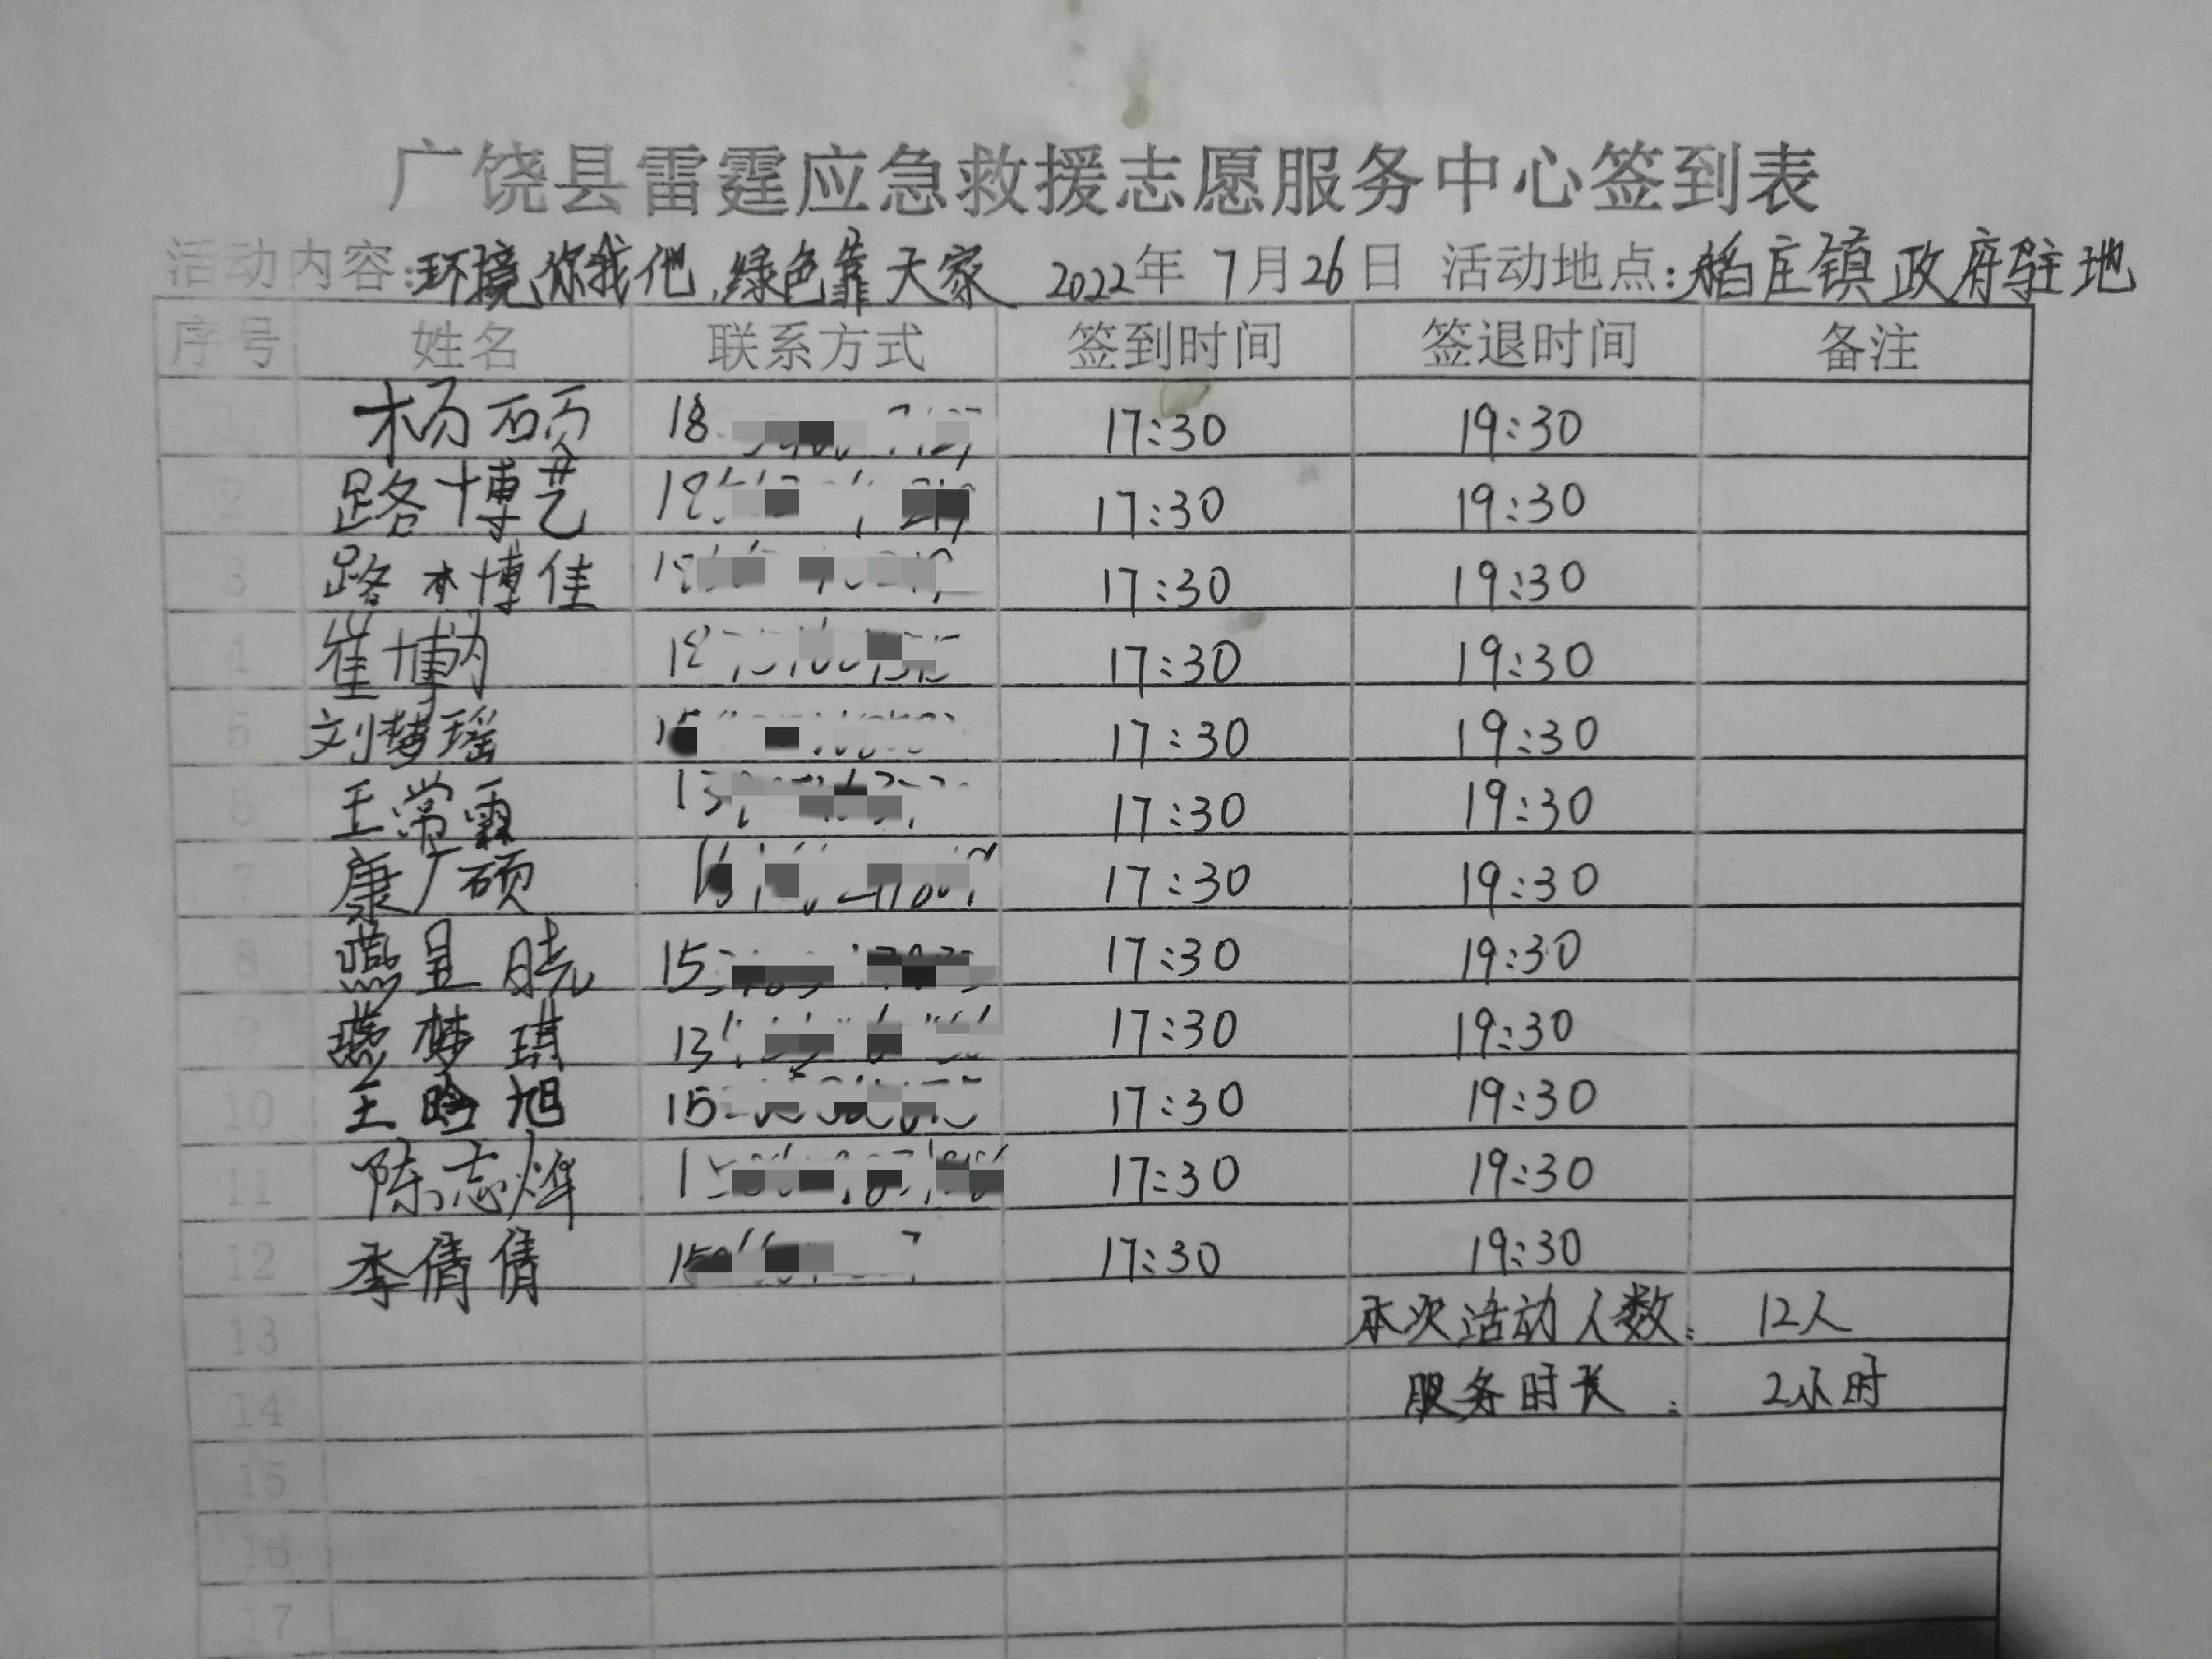 广饶县雷霆应急救援志愿服务中心签到表
活动内容:环境你我他,绿色靠大家 2022年 7月26日 活动地点:稻庄镇政府驻地
序号 姓名 联系方式 签到时间 签退时间 备注
1 杨硕 18 17:30 19:30
2 路博艺 17:30 19:30
3 路博佳 17:30 19:30
4 崔博 17:30 19:30
5 刘梦瑶 15 17:30 19:30
6 王常霖 13 17:30 19:30
7 康广硕 17:30 19:30
8 燕昱晓 15 17:30 19:30
9 燕梦琪 13 17:30 19:30
10 王晗旭 15 17:30 19:30
11 陈志烨 17:30 19:30
12 李倩倩 15 17:30 19:30
13 本次活动人数: 12人
14 服务时长: 2小时
15
16
17